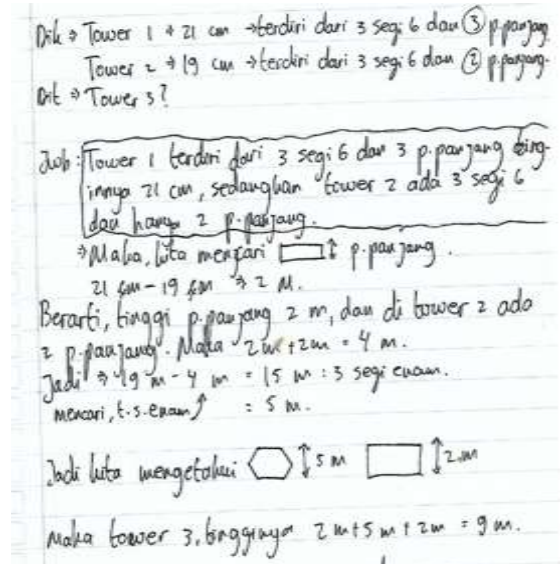 Dik → Tower 1 → 21 cm → terdiri dari 3 segi 6 dan 3 p.panjang
Tower 2 → 19 cm → terdiri dari 3 segi 6 dan 2 p.panjang.
Dit → Tower 3?
Jwb: Tower 1 terdiri dari 3 segi 6 dan 3 p.panjang ting-
innya 21 cm, sedangkan tower 2 ada 3 segi 6
dan hanya 2 p.panjang.
→ Maka, kita mencari ↕ p.panjang.
21 m - 19 m → 2 M.
Berarti, tinggi p.panjang 2 m, dan di tower 2 ada
2 p.panjang. Maka 2m + 2m = 4 m.
Jadi → 19 m - 4 m = 15 m : 3 segi enam.
mencari, t.s.enam ↑ = 5 m.
Jadi kita mengetahui ↕ 5 m ↕ 2 m
Maka tower 3, tingginya 2 m + 5 m + 2m = 9 m.